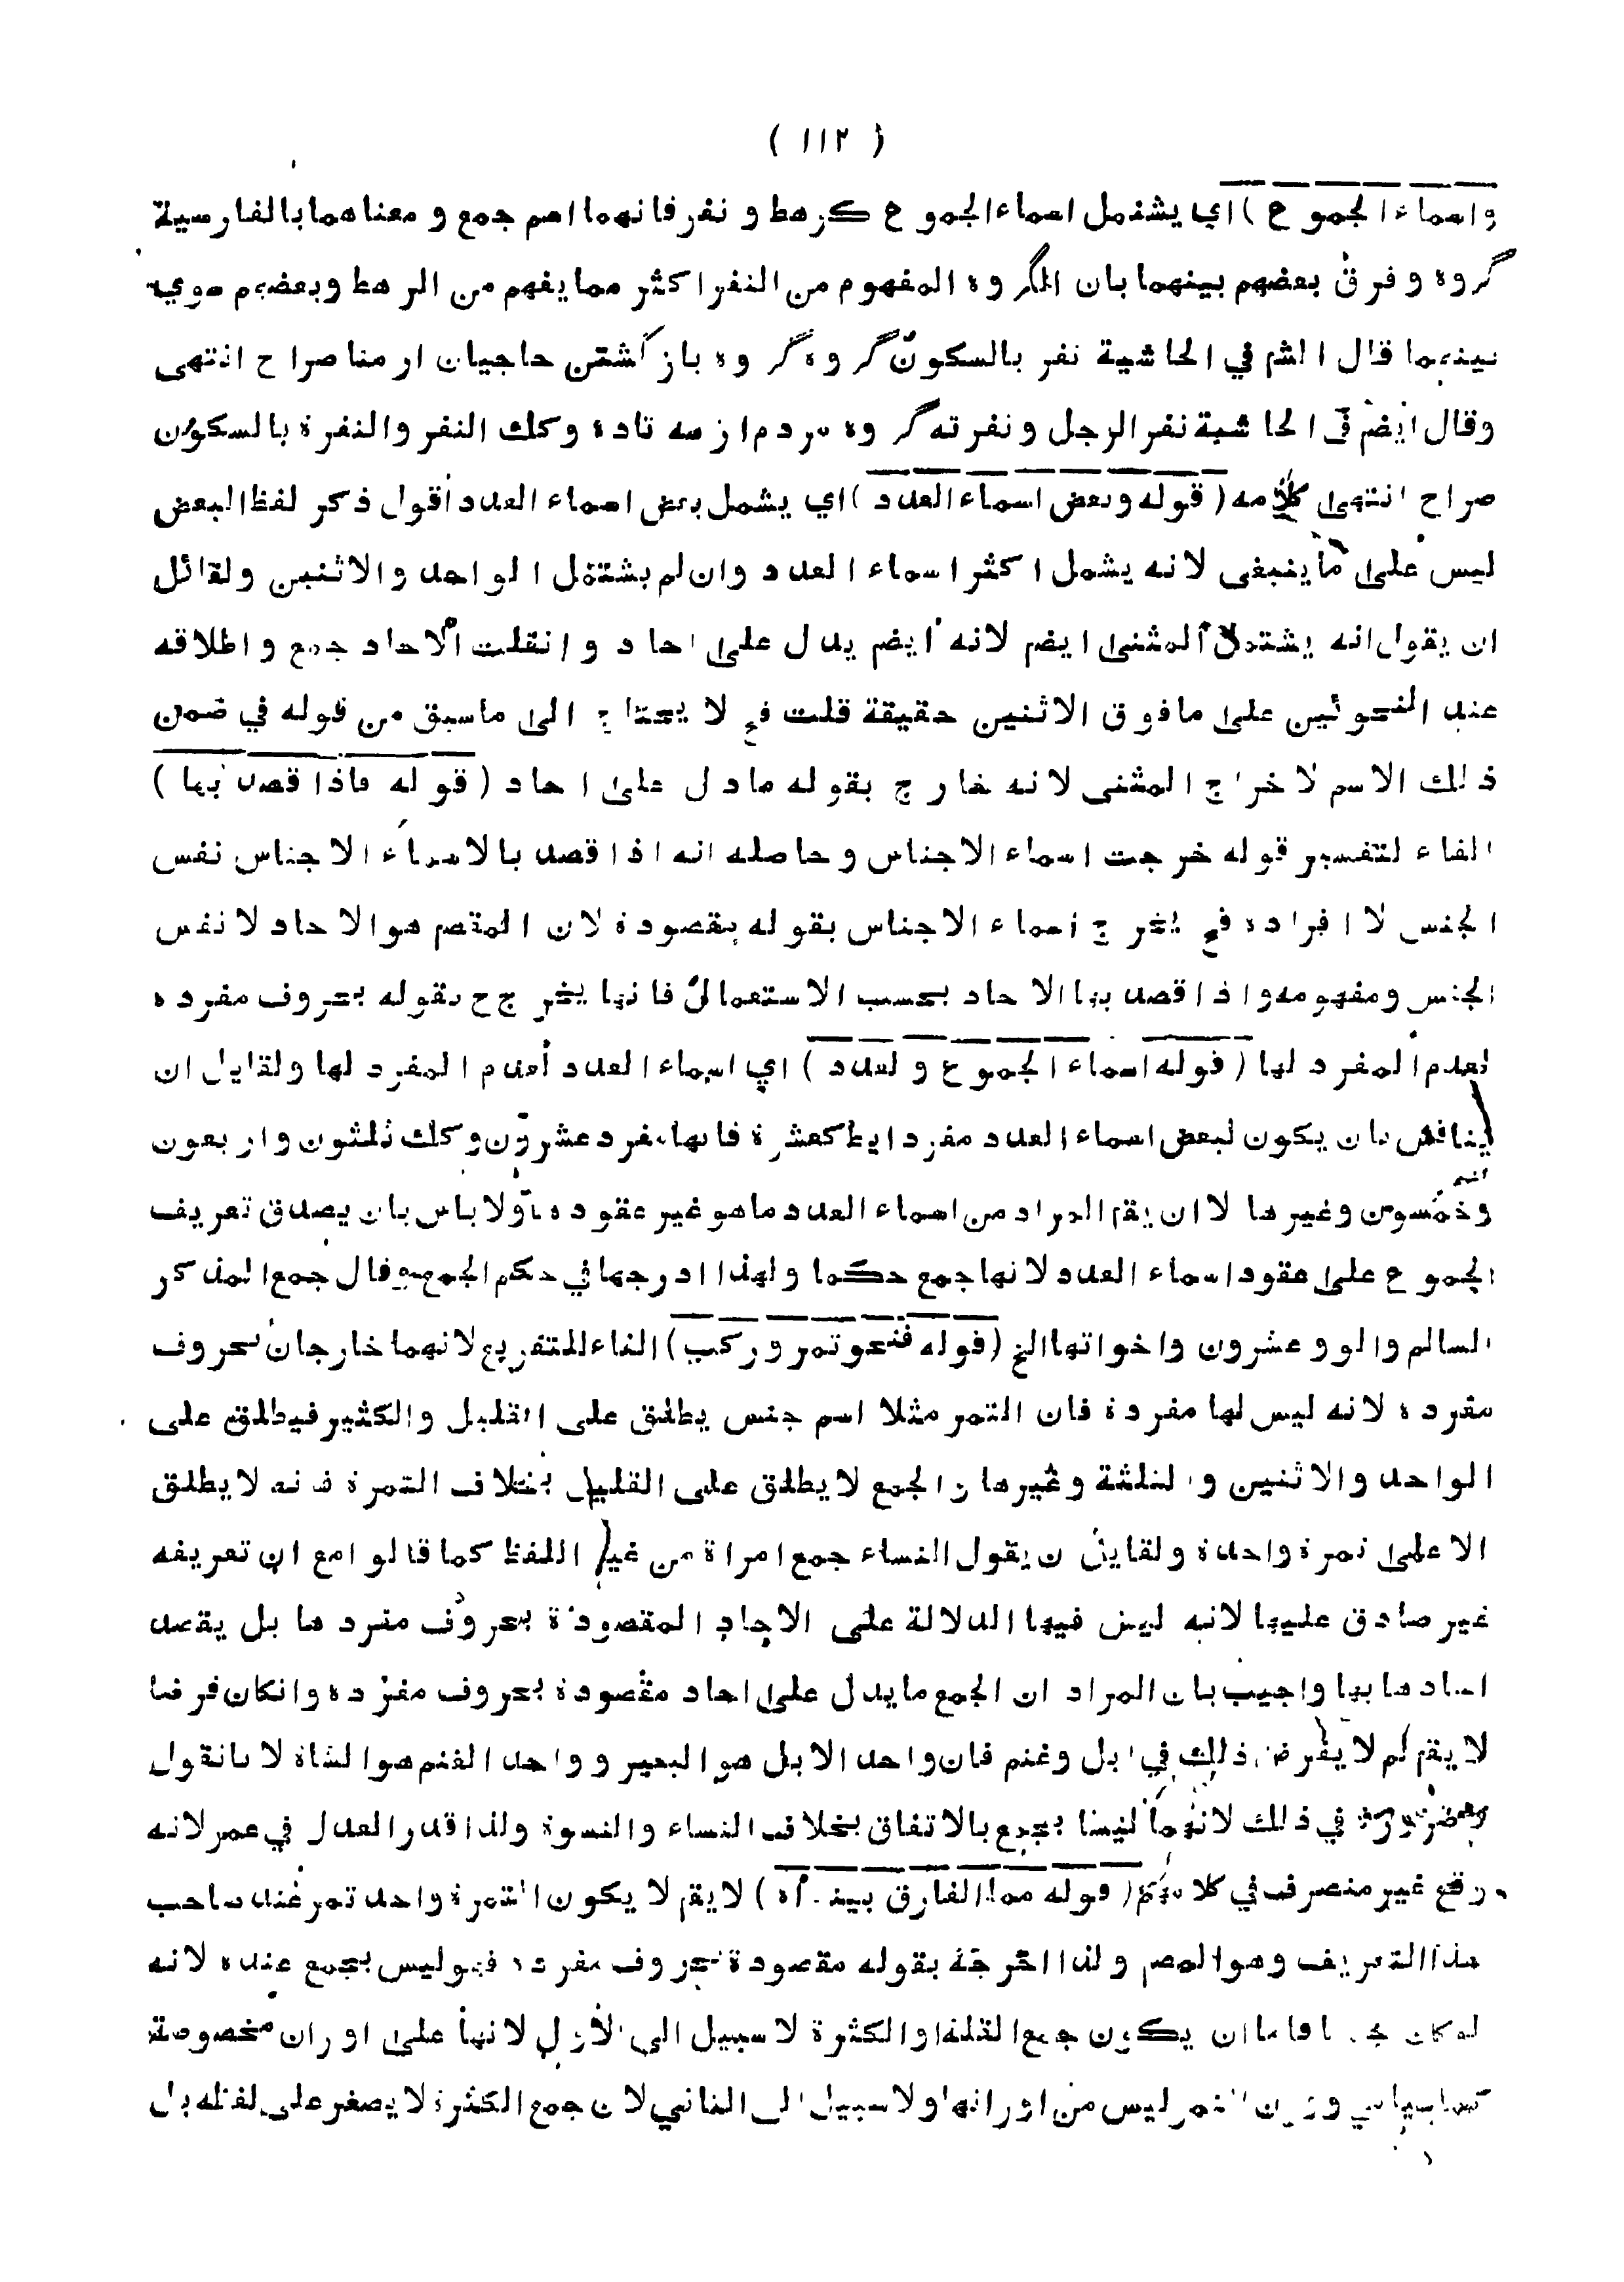 ( ١١٢ )
واسماء الجموع ) اي يشتمل اسماء الجموع كرهط و نفر فانهما اسم جمع و معناهما بالفارسية
گروه و فرق بعضهم بينهما بان الگروه المفهوم من النفر اكثر مما يفهم من الرهط وبعضهم سوي
بينهما قال الشم في الحاشية نفر بالسكون گروه گروه باز گشتن حاجيان از منا صراح انتهى
وقال ايضم في الحاشية نفر الرجل و نفرته گروه مردم از سه تاده وكلك النفر والنفرة بالسكون
صراح انتهى كلامه ( قوله وبعض اسماء العدد ) اي يشمل بعض اسماء العدد أقول ذكر لفظ البعض
ليس على ما ينبغى لانه يشمل اكثر اسماء العدد وان لم يشتمل الواحد والاثنين ولقائل
ان يقول انه يشتمل المثنى ايضم لانه ايضم يدل على احاد و انقلت الاحاد جمع و اطلاقه
عند النحوئين على مافوق الاثنين حقيقة قلت فح لا يحتاج الى ماسبق من قوله في ضمن
ذلك الاسم لاخراج المثنى لانه خارج بقوله مادل على احاد ( قوله فاذا قصد بها )
الفاء لتفسير قوله خرجت اسماء الاجناس وحاصله انه اذا قصد بالاسماء الاجناس نفس
الجنس لا افراده فح يخرج اسماء الاجناس بقوله بقصودة لان المقصم هو الاحاد لا نفس
الجنس ومفهومه واذا قصد بها الاحاد بحسب الاستعمال فانها يخرج ح بقوله بحروف مفرده
لعدم المفرد لها ( قوله اسماء الجموع ولعدد ) اي اسماء العدد لعدم المفرد لها ولقايل ان
يناقش بان يكون لبعض اسماء العدد مفرد ايط كعشرة فانها مفرد عشرون وكلك ثلثون واربعون
وخمسون وغيرها لا ان يقم المراد من اسماء العدد ماهو غير عقوده ولاباس بان يصدق تعريف
الجموع على عقود اسماء العدد لانها جمع حكما ولهذا ادرجها في حكم الجمع وقال جمع المذكر
السالم والو وعشرون واخواتها الخ ( قوله فنحو تمر وركب ) الفاء للتفريع لانهما خارجان بحروف
مفرده لانه ليس لها مفردة فان التمر مثلا اسم جنس يطلق على القليل والكثير فيطلق على
الواحد والاثنين والثلثة وغيرها والجمع لايطلق على القليل بخلاف التمرة فانه لايطلق
الا على تمرة واحدة ولقايل ان يقول النساء جمع امراة من غير اللفظ كما قالوا مع ان تعريفه
غير صادق عليها لانه ليس فيها الدلالة على الاحاد المقصودة بحروف مفردها بل يقصد
احادها بها واجيب بان المراد ان الجمع مايدل على احاد مقصودة بحروف مفرده وانكان فرضا
لايقم لم لايفرض ذلك في ابل وغنم فان واحد الابل هو البعير وواحد الغنم هوالشاة لانانقول
في ذلك لانهما ليسا بجمع بالاتفاق بخلاف النساء والنسوة ولذا قدر العدل في عمر لانه
وقع غير منصرف في كلامهم ( قوله مما الفارق بينه اه ) لايقم لايكون التمرة واحد تمر عند صاحب
هذا التعريف وهو المصم ولذا اخرجه بقوله مقصودة بحروف مفرده فهو ليس بجمع عنده لانه
لوكان جمعا فاما ان يكون جمع القلة او الكثرة لاسبيل الى الاول لانها على اوزان مخصوصة
كما سياتي وزن التمر ليس من اوزانها ولاسبيل الى الثاني لان جمع الكثرة لايصغر على لفظه بل